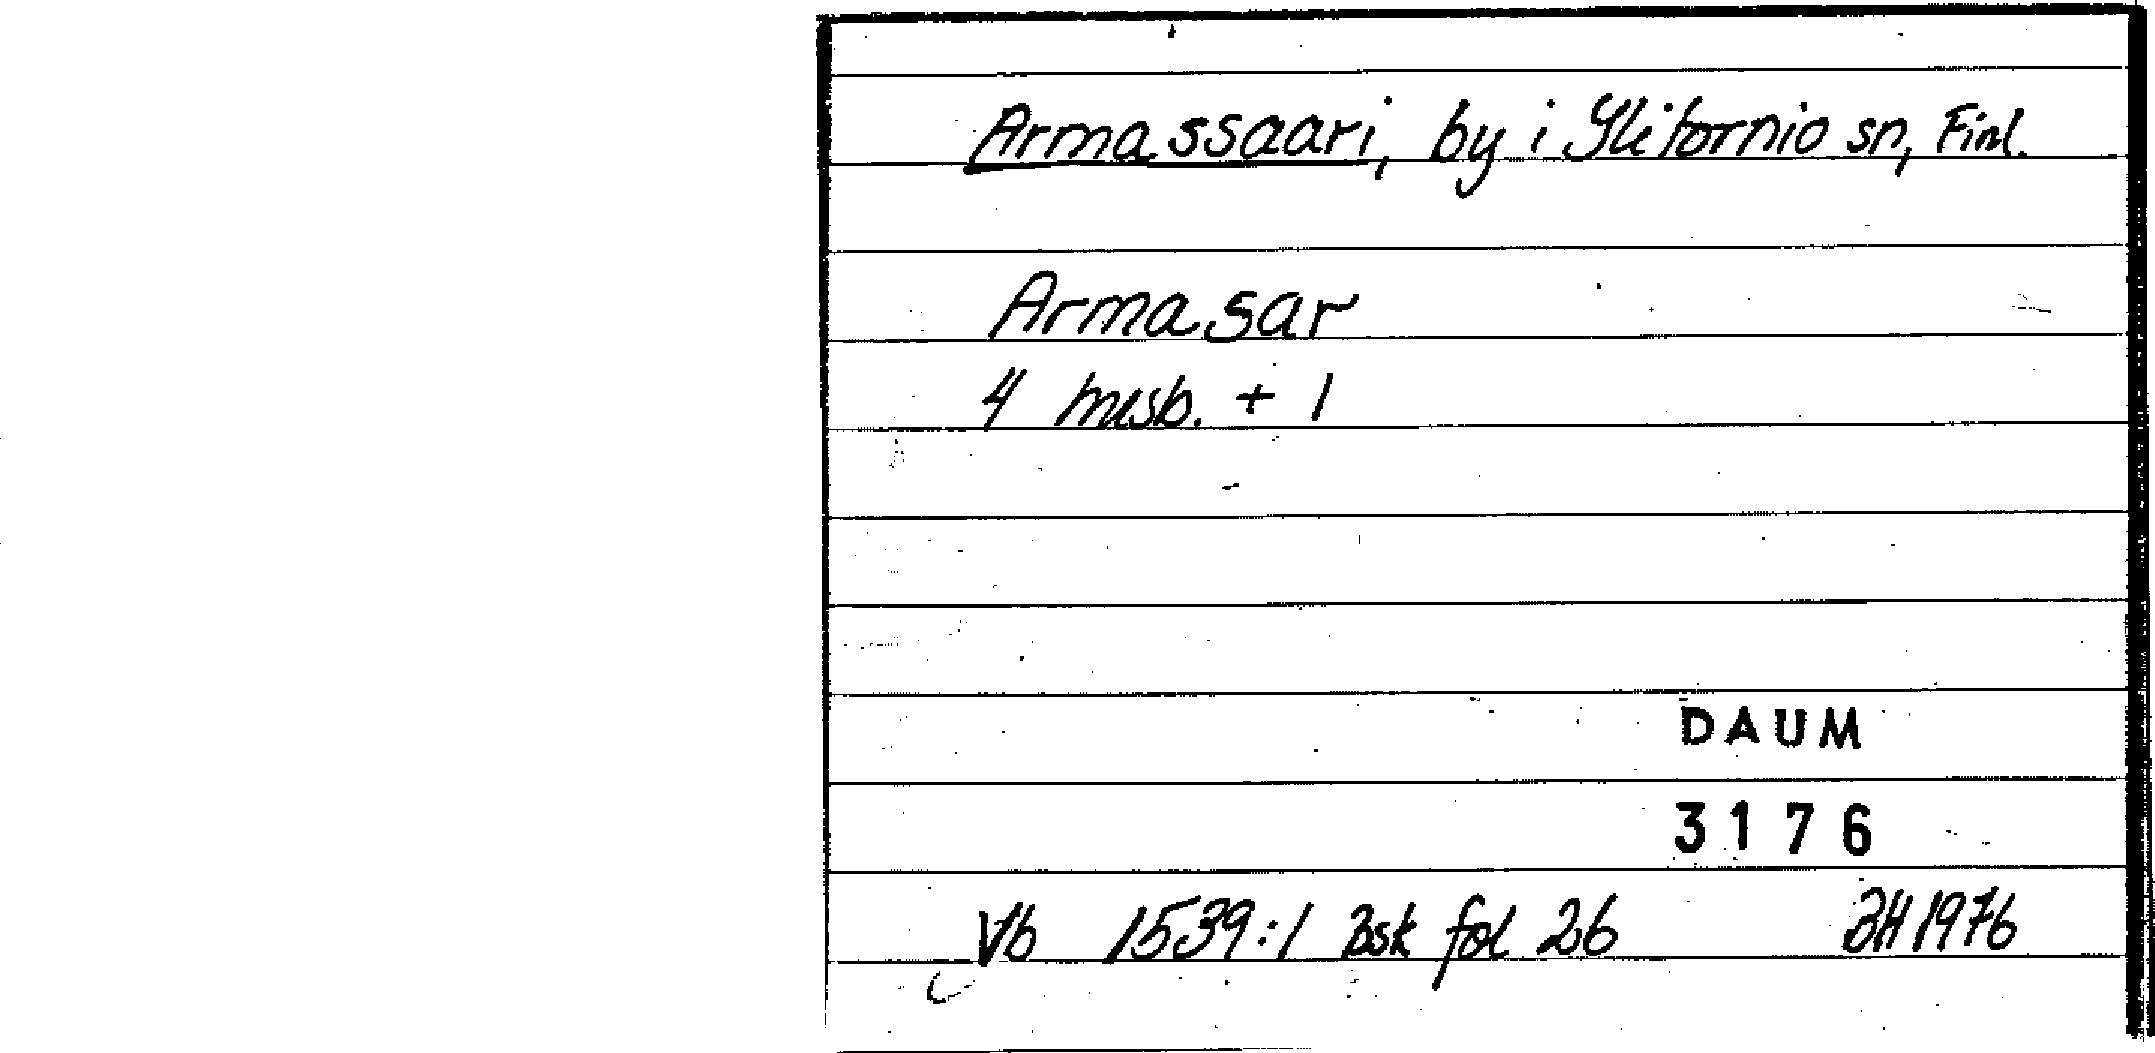 Armassaari, by i Ylitornio sn, Finl.
Armasar
4 husb. + 1
DAUM
3176
Vb 1539:1 Bsk fol 26 BH 1976